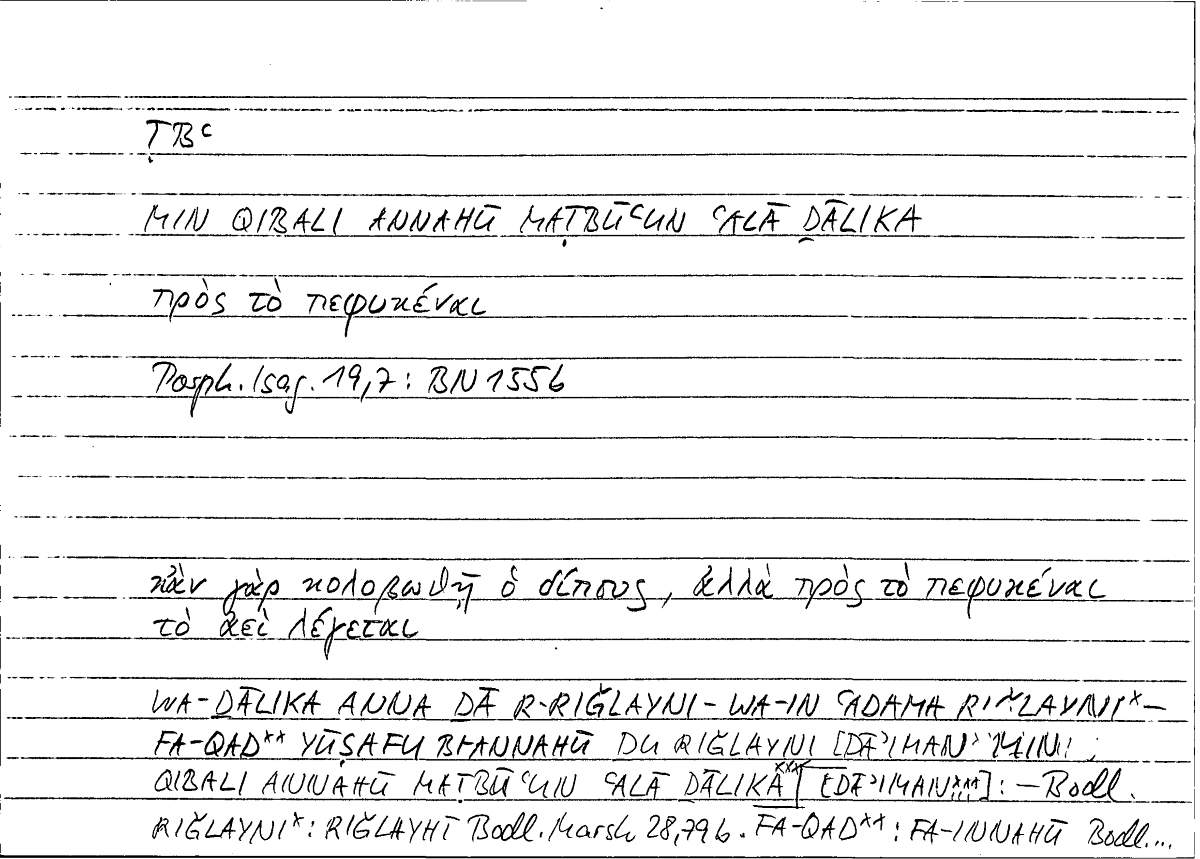 ṬBʿ
MIN QIBALI ANNAHŪ MAṬBŪʿUN ʿALĀ ḎĀLIKA
πρὸς τὸ πεφυκέναι
Porph. Isag. 19,7: BN 155b
κἂν γὰρ κολοβωθῇ ὁ δίπους, ἀλλὰ πρὸς τὸ πεφυκέναι
τὸ ἀεὶ λέγεται
WA-ḎĀLIKA ANNA ḎĀ R-RIǦLAYNI – WA-IN ʿADAMA RIǦLAYNI* –
FA-QAD** YŪṢAFU BI-ANNAHŪ ḎU RIǦLAYNI [DĀʾIMAN] MIN
QIBALI ANNAHŪ MAṬBŪʿUN ʿALĀ ḎĀLIKA*** [DĀʾIMAN***]: – Bodl.
RIǦLAYNI*: RIǦLAYHĪ Bodl. Marsh 28,79b. FA-QAD**: FA-INNAHŪ Bodl....